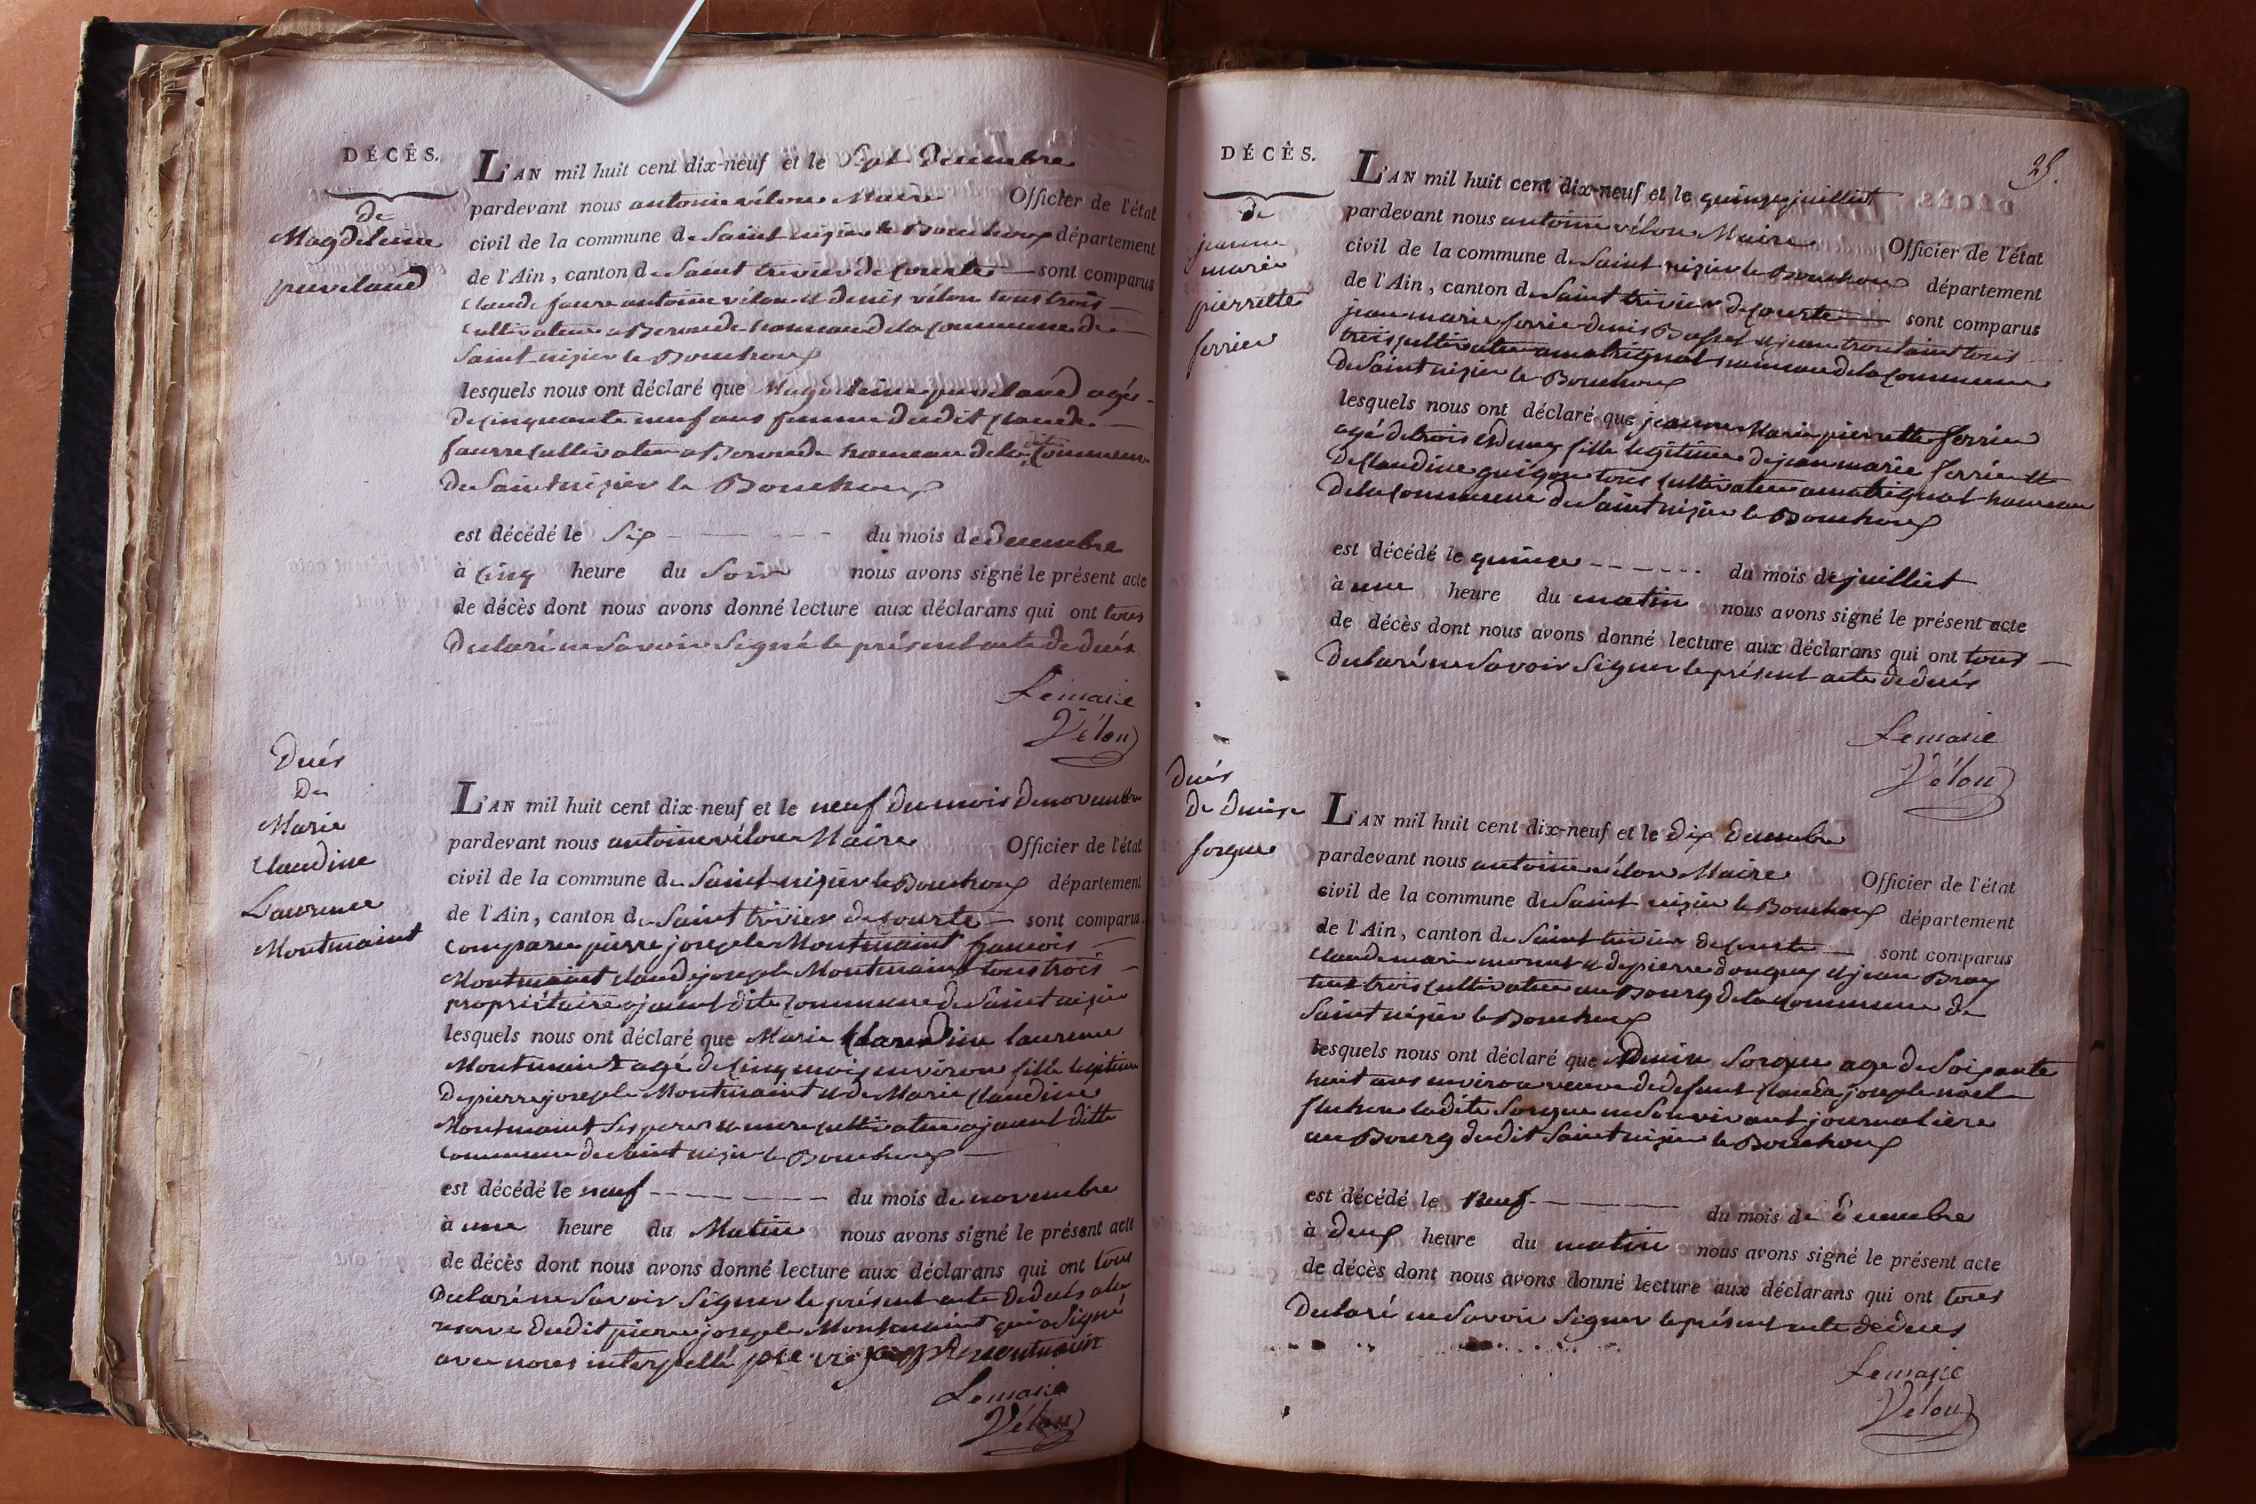 DÉCÈS.
de
Magdeleine
puveland
L'AN mil huit cent dix-neuf et le Sept decembre
pardevant nous antoine vélou Maire Officier de l'état
civil de la commune de Saint nizier le Bouchoux département
de l'Ain, canton de Saint trivier de Courte sont comparus
claude faure antoine vélou et denis vélou tous trois
cultivateur a Beroude hameau de la Commune de
Saint nizier le Bouchoux
lesquels nous ont déclaré que Magdeleine puveland agée
de cinquante neuf ans femme dudit Claude
faurre cultivateur a Beroude hameau de la dite Commune
de Saint nizier le Bouchoux
est décédé le Six du mois de decembre
à Cinq heure du Soir nous avons signé le présent acte
de décès dont nous avons donné lecture aux déclarans qui ont tous
declaré ne Savoir Signé le présent acte de decés
Lemaire
Vélou
Decés
De
Marie
Claudine
Laurence
Montmaint
L'AN mil huit cent dix-neuf et le neuf du mois de novembre
pardevant nous antoine vélou Maire Officier de l'état
civil de la commune de Saint nizier le Bouchoux département
de l'Ain, canton de Saint trivier de Courte sont comparus
comparu pierre joseph Montmaint francois
Montmaint claude joseph Montmaint tous trois
propriétaire a jaunet dite Commune de Saint nizier
lesquels nous ont déclaré que Marie Claudine laurence
Montmaint agé de Cinq mois environ fille legitime
de pierre joseph Montmaint et de Marie Claudine
Montmaint Ses pere et mere cultivateur a jaunet ditte
Commune de Saint nizier le Bouchoux
est décédé le neuf du mois de novembre
à une heure du Matin nous avons signé le présent acte
de décès dont nous avons donné lecture aux déclarans qui ont tous
declaré ne Savoir Signer le présent acte de decés a la
reserve dudit pierre joseph Montmaint qui a Signé
avec nous interpellé montmaint
Lemaire
Vélou
25.
DÉCÈS.
de
jeanne
marie
pierrette
ferrier
L'AN mil huit cent dix-neuf et le quinze juilliet
pardevant nous antoine vélou Maire Officier de l'état
civil de la commune de Saint nizier le Bouchoux département
de l'Ain, canton de Saint trivier de Courte sont comparus
jean marie ferrie denis Basset et jean tous
trois cultivateur a matrignat hameau de la Commune
de Saint nizier le Bouchoux
lesquels nous ont déclaré que jeanne Marie pierrette ferrier
agé de trois fille legitime de jean marie ferrie et
de Claudine guigon tous cultivateur a matrignat hameau
de la Commune de Saint nizier le Bouchoux
est décédé le quinze du mois de juilliet
à une heure du matin nous avons signé le présent acte
de décès dont nous avons donné lecture aux déclarans qui ont tous
declaré ne Savoir Signer le présent acte de decés
Lemaire
Vélou
decés
de denise
sorgue
L'AN mil huit cent dix-neuf et le dix decembre
pardevant nous antoine vélou Maire Officier de l'état
civil de la commune de Saint nizier le Bouchoux département
de l'Ain, canton de Saint trivier de Courte sont comparus
claude marie monet et de pierre donguy et jean Bray
tous trois cultivateur au Bourg de la Commune de
Saint nizier le Bouchoux
lesquels nous ont déclaré que denise Sorgue age de Soixante
huit ans environ veuve de defunt Claude joseph noel
la dite Sorgue en Son vivant journaliere
au Bourg dudit Saint nizier le Bouchoux
est décédé le neuf du mois de decembre
à deux heure du matin nous avons signé le présent acte
de décès dont nous avons donné lecture aux déclarans qui ont tous
declaré ne Savoir Signer le présent acte de decés
Lemaire
Vélou